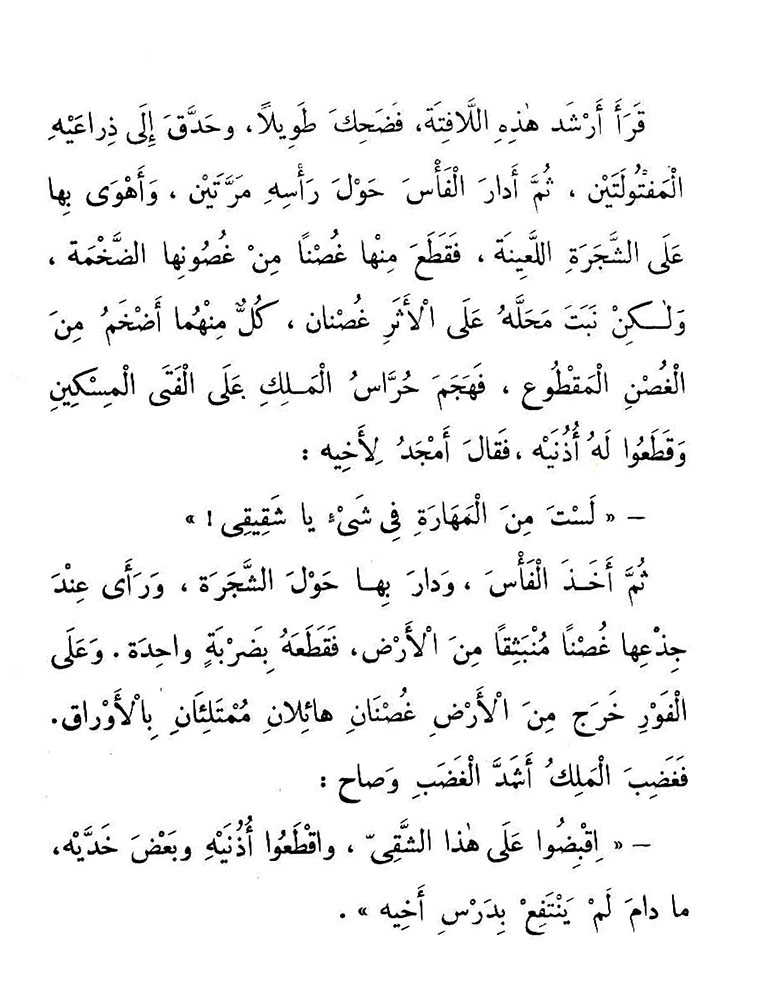 قَرَأَ أَرْشَد هٰذِهِ اللَّافِتَة، فَضَحِكَ طَوِيلًا، وحَدَّقَ إِلَى ذِراعَيْهِ
الْمَفْتُولَتَيْن ، ثُمَّ أَدارَ الْفَأْسَ حَوْلَ رَأْسِهِ مَرَّتَيْن ، وَأَهْوَى بِها
عَلَى الشَّجَرَةِ اللَّعِينَة ، فَقَطَعَ مِنْها غُصْنًا مِنْ غُصُونِها الضَّخْمَة ،
وَلٰكِنْ نَبَتَ مَحَلَّهُ عَلَى الْأَثَرِ غُصْنان ، كُلٌّ مِنْهُما أَضْخَمُ مِنَ
الْغُصْنِ الْمَقْطُوع ، فَهَجَمَ حُرَّاسُ الْمَلِكِ عَلَى الْفَتَى الْمِسْكِينِ
وَقَطَعُوا لَهُ أُذُنَيْه ، فَقالَ أَمْجَدُ لِأَخِيه :
– « لَسْتَ مِنَ الْمَهَارَةِ فِى شَىْءٍ يا شَقِيقِى ! »
ثُمَّ أَخَذَ الْفَأْسَ ، وَدارَ بِها حَوْلَ الشَّجَرَة ، وَرَأَى عِنْدَ
جِذْعِها غُصْنًا مُنْبَثِقًا مِنَ الْأَرْض، فَقَطَعَهُ بِضَرْبَةٍ واحِدَة . وَعَلَى
الْفَوْرِ خَرَج مِنَ الْأَرْضِ غُصْنَانِ هائِلانِ مُمْتَلِئَانِ بِالْأَوْراق.
فَغَضِبَ الْمَلِكُ أَشَدَّ الْغَضَبِ وَصاح :
– « اِقْبِضُوا عَلَى هٰذا الشَّقِىّ ، واقْطَعُوا أُذُنَيْهِ وبَعْضَ خَدَّيْه،
ما دامَ لَمْ يَنْتَفِعْ بِدَرْسِ أَخِيه » .